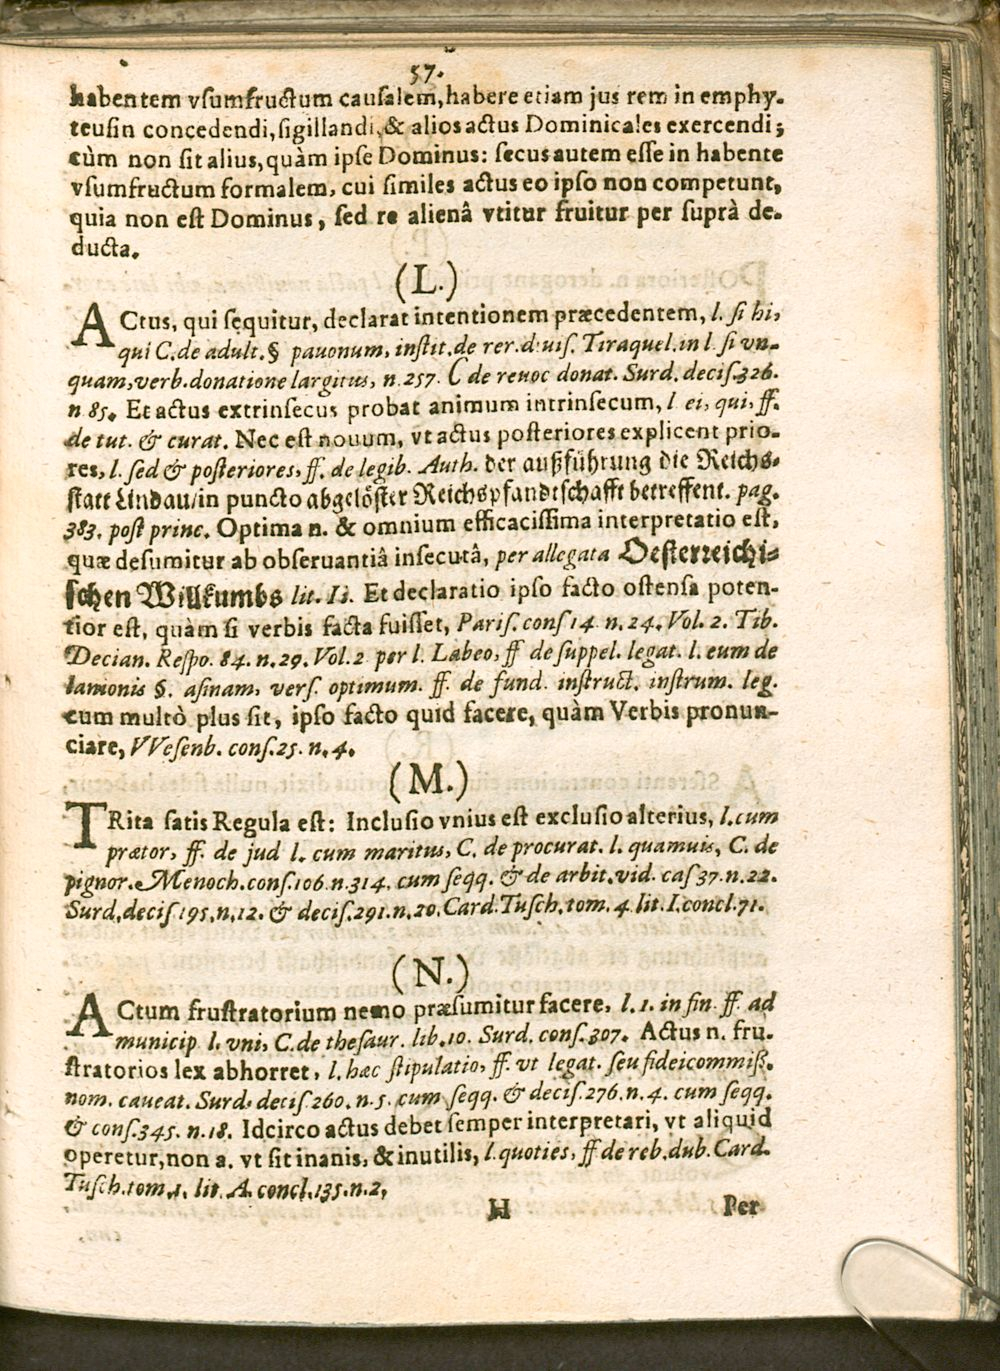 57.
habentem vsumfructum causalem, habere etiam jus rem in emphy-
teusin concedendi, sigillandi, & alios actus Dominicales exercendi;
cùm non sit alius, quàm ipse Dominus: secus autem esse in habente
vsumfructum formalem, cui similes actus eo ipso non competunt,
quia non est Dominus, sed re alienâ vtitur fruitur per suprà de-
ducta.
(L.)
ACtus, qui sequitur, declarat intentionem præcedentem, l. si hi,
qui C. de adult. § pavonum, instit. de rer. divis. Tiraquel. in l si vn-
quam, verb. donatione largitus, n. 257. C de revoc donat. Surd. decis. 326.
n 85. Et actus extrinsecus probat animum intrinsecum, l ei, qui, ff.
de tut. & curat. Nec est novum, vt actus posteriores explicent prio-
res, l. sed & posteriores, ff. de legib. Auth. der außführung die Reichs-
statt Lindau/in puncto abgelöster Reichspfandtschafft betreffent. pag.
383. post princ. Optima n. & omnium efficacissima interpretatio est,
quæ desumitur ab observantiâ insecutâ, per allegata Oesterreichi-
schen Willkumbs lit. Ii. Et declaratio ipso facto ostensa poten-
tior est, quàm si verbis facta fuisset, Paris. cons 14 n. 24. Vol. 2. Tib.
Decian. Respo. 84. n. 29. Vol. 2 per l. Labeo, ff de suppel. legat. l. eum de
lanionis §. asinam, vers. optimum. ff. de fund. instruct. instrum. leg.
cum multò plus sit, ipso facto quid facere, quàm Verbis pronun-
ciare, VVesenb. cons. 25. n. 4.
(M.)
TRita satis Regula est: Inclusio vnius est exclusio alterius, l. cum
prætor, ff. de jud l. cum maritus, C. de procurat. l. quamuis, C. de
pignor. Menoch. cons. 106. n. 314. cum seqq. & de arbit. vid. cas 37. n. 22.
Surd. decis 195. n. 12. & decis. 291. n. 20. Card. Tusch. tom. 4. lit. I. concl. 71.
(N.)
ACtum frustratorium nemo præsumitur facere, l. 1. in fin. ff. ad
municip l. vni, C. de thesaur. lib. 10. Surd. cons. 307. Actus n. fru-
stratorios lex abhorret, l. hæc stipulatio, ff. vt legat. seu fideicommiß.
nom. caveat. Surd. decis. 260. n. 5. cum seqq. & decis. 276. n. 4. cum seqq.
& cons. 345. n. 18. Idcirco actus debet semper interpretari, vt aliquid
operetur, non a. vt sit inanis, & inutilis, l. quoties, ff de reb. dub. Card.
Tusch. tom. 1. lit. A. concl. 135. n. 2,
H Per